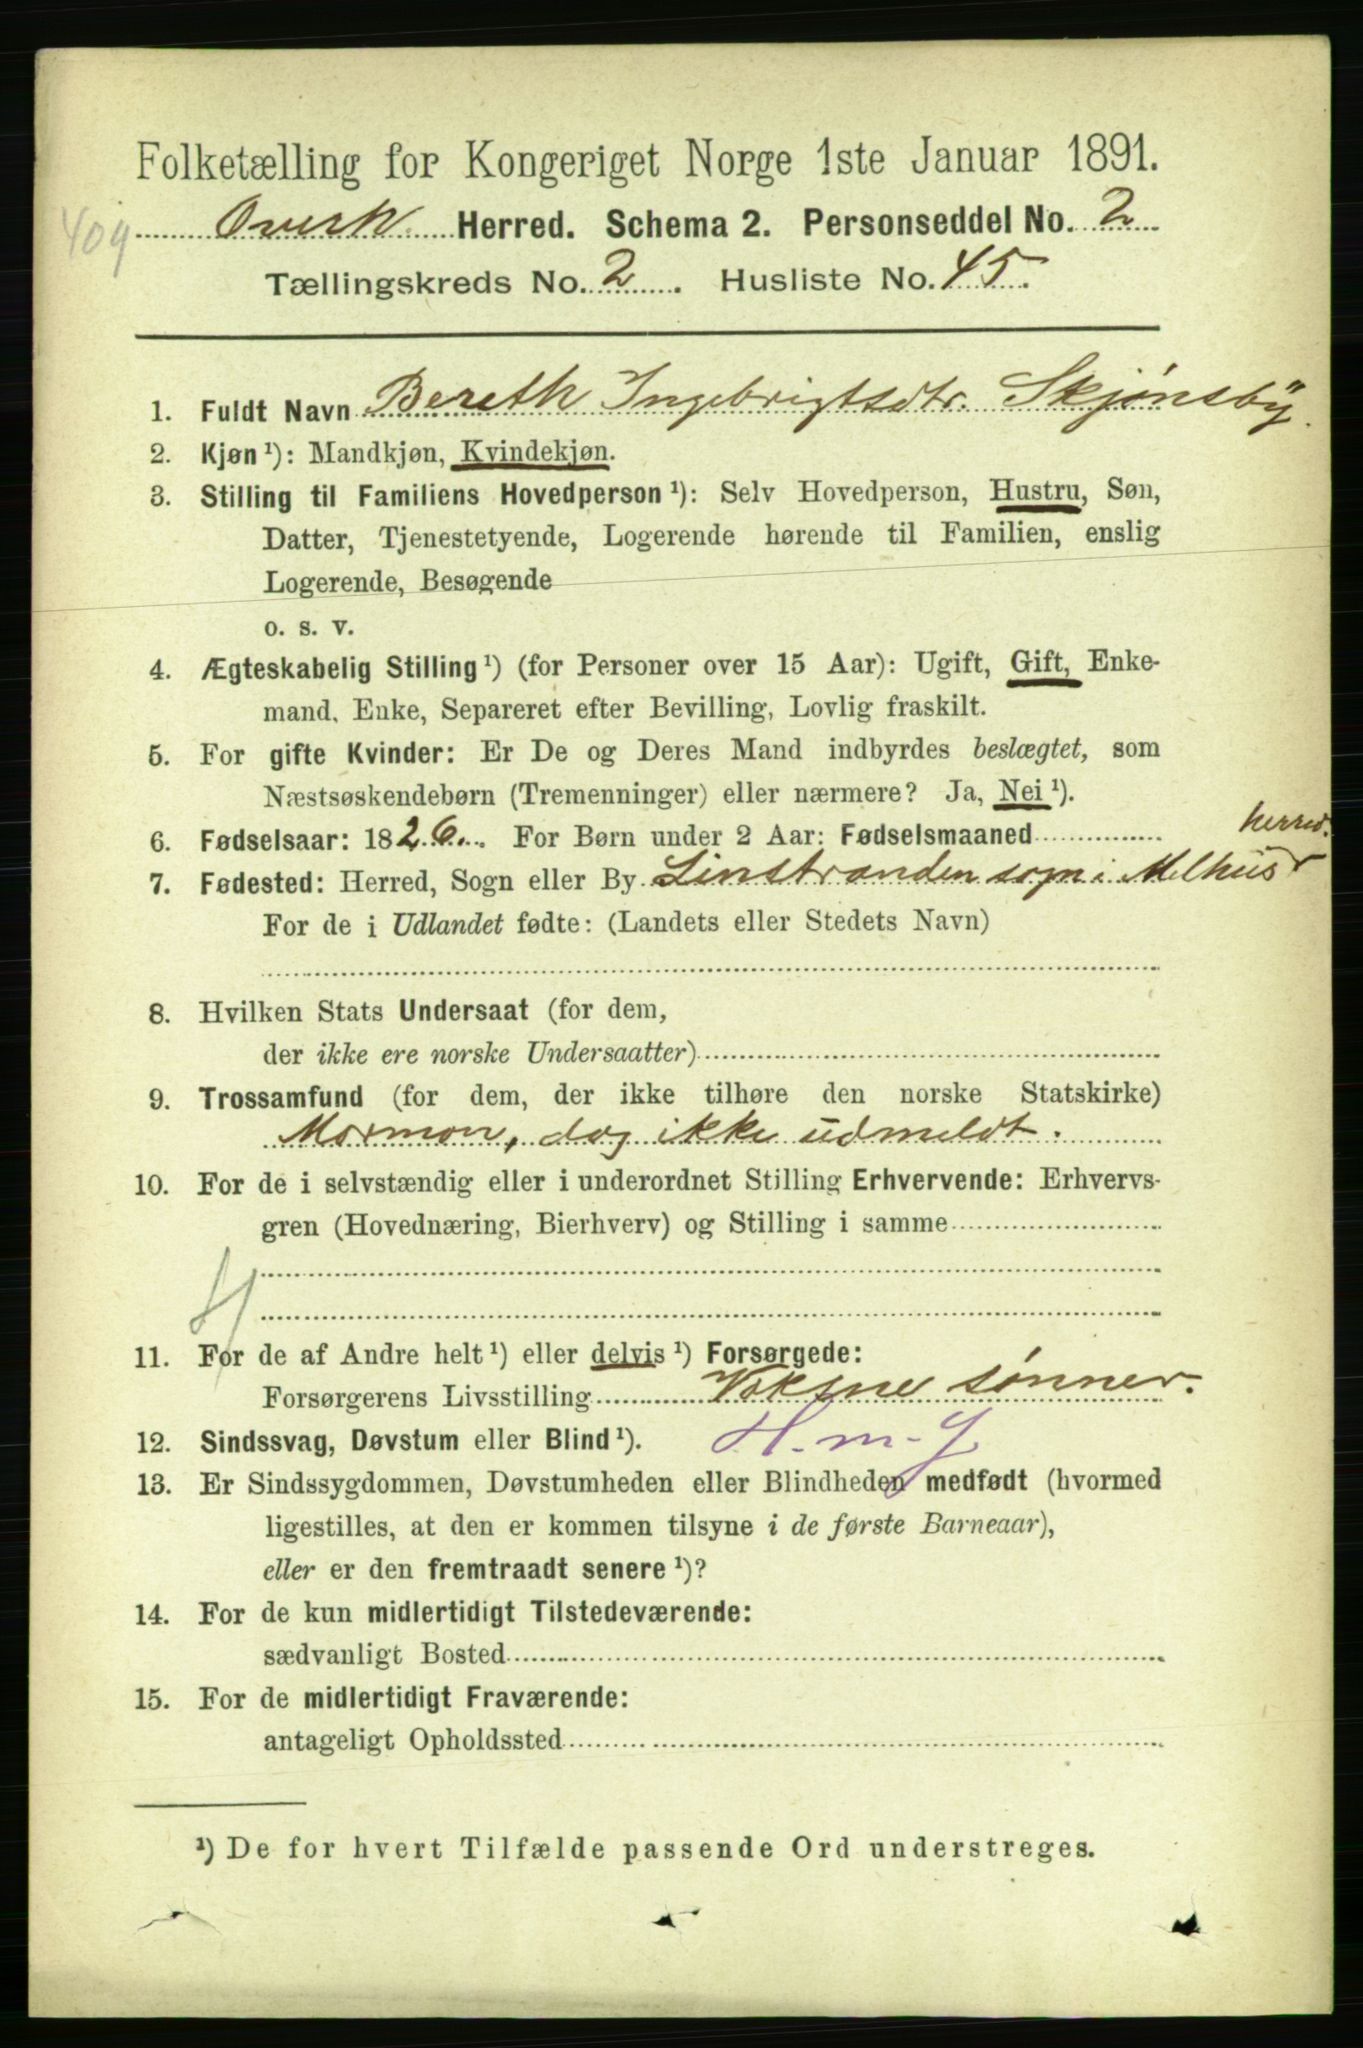 Folketælling for Kongeriget Norge 1ste Januar 1891.
409
Herred. Schema 2. Personseddel No. 2
Tællingskreds No. 2. Husliste No. 45.
1. Fuldt Navn Bereth Ingebrigtsdtr. Skjønsby.
2. Kjøn ¹): Mandkjøn, Kvindekjøn.
3. Stilling til Familiens Hovedperson ¹): Selv Hovedperson, Hustru, Søn,
Datter, Tjenestetyende, Logerende hørende til Familien, enslig
Logerende, Besøgende
o. s. v.
4. Ægteskabelig Stilling ¹) (for Personer over 15 Aar): Ugift, Gift, Enke-
mand, Enke, Separeret efter Bevilling, Lovlig fraskilt.
5. For gifte Kvinder: Er De og Deres Mand indbyrdes beslægtet, som
Næstsøskendebørn (Tremenninger) eller nærmere? Ja, Nei ¹).
6. Fødselsaar: 1826. For Børn under 2 Aar: Fødselsmaaned
herred.
7. Fødested: Herred, Sogn eller By Linstranden sogn i Melhus
For de i Udlandet fødte: (Landets eller Stedets Navn)
8. Hvilken Stats Undersaat (for dem,
der ikke ere norske Undersaatter)
9. Trossamfund (for dem, der ikke tilhøre den norske Statskirke)
Mormon, dog ikke udmeldt.
10. For de i selvstændig eller i underordnet Stilling Erhvervende: Erhvervs-
gren (Hovednæring, Bierhverv) og Stilling i samme
11. For de af Andre helt ¹) eller delvis ¹) Forsørgede:
Forsørgerens Livsstilling Voksne sønner.
12. Sindssvag, Døvstum eller Blind ¹). H. m. g
13. Er Sindssygdommen, Døvstumheden eller Blindheden medfødt (hvormed
ligestilles, at den er kommen tilsyne i de første Barneaar),
eller er den fremtraadt senere ¹)?
14. For de kun midlertidigt Tilstedeværende:
sædvanligt Bosted
15. For de midlertidigt Fraværende:
antageligt Opholdssted
¹) De for hvert Tilfælde passende Ord understreges.